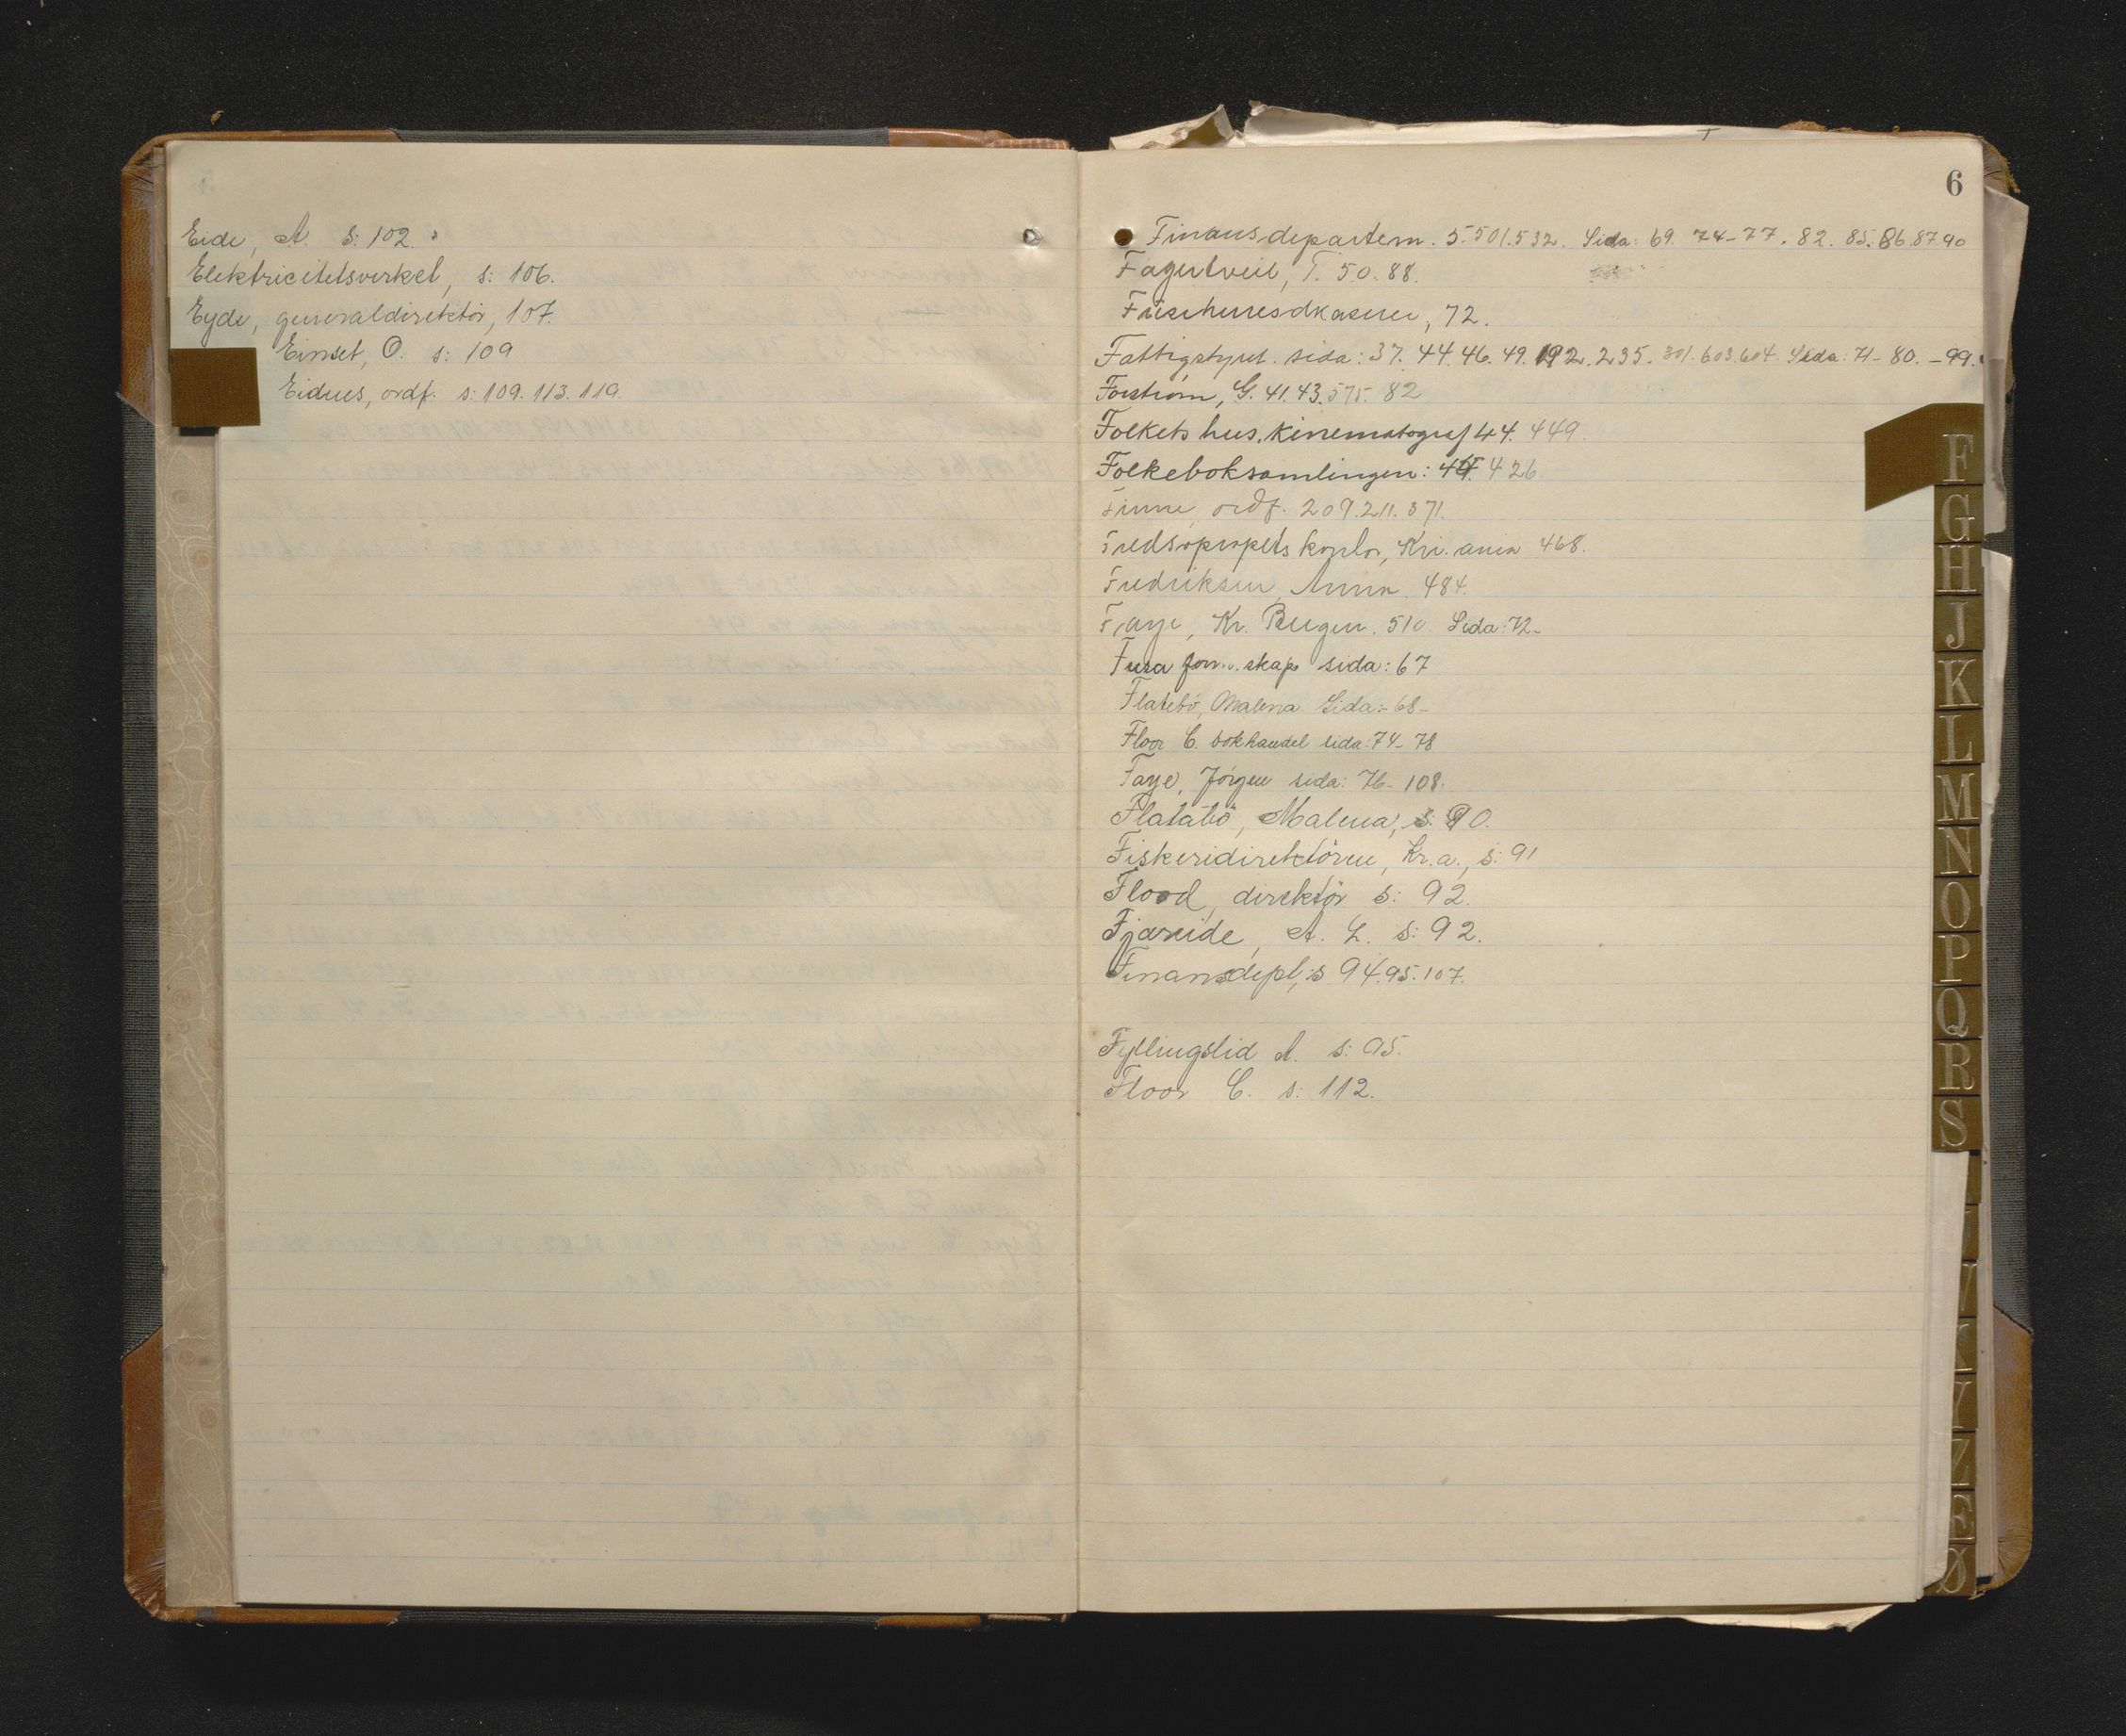 Eide, A. s: 102.
Elektricitetsverket, s: 106.
Eyde, generaldirektör, 107.
Einset, O. s: 109
Eidnes, ordf. s: 109. 113. 119.
6
Finansdepartem. 5. 501. 532. Sida: 69. 74-77. 82. 85. 86. 87. 90
Fagertveit, T. 50. 88.
72.
Fattigstyret. sida: 37. 44. 46. 49. 192. 235. 301. 603. 604. Sida: 71- 80. -99.
Forström, G. 41. 43. 575. 82
Folkets hus. kinematograf 44. 449.
Folkeboksamlingen: 426.
Finne, ordf. 209. 211. 371.
kontor, Kri.ania 468.
Fredriksen, Anna. 484.
Faye, Kr. Bergen. 510. Sida: 72-
Fusa form.skap sida: 67
Flatebö, Malena. Sida:- 68-
Floor C. bokhandel sida: 74- 78
Faye, Jörgen sida: 76- 108.
Flatabö, Malena, s. 90.
Fiskeridirektören, Kr.a., s: 91
Flood, direktör s: 92.
Fjæreide, A. L. s: 92.
Finansdept, s 94. 95. 107.
Fyllingslid A. s: 95.
Floor C. s: 112.
F
G
H
J
K
L
M
N
O
P
Q
R
S
Y
Z
Æ
Ø